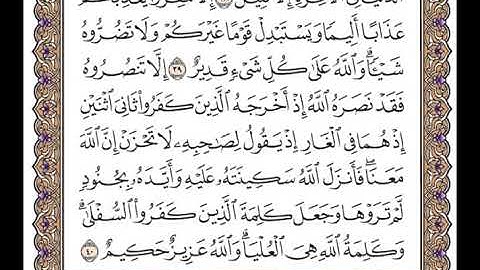 عَذَابًا أَلِيمًا وَيَسْتَبْدِلْ قَوْمًا غَيْرَكُمْ وَلَا تَضُرُّوهُ
شَيْـًٔا ۗ وَٱللَّهُ عَلَىٰ كُلِّ شَىْءٍ قَدِيرٌ ٣٩ إِلَّا تَنصُرُوهُ
فَقَدْ نَصَرَهُ ٱللَّهُ إِذْ أَخْرَجَهُ ٱلَّذِينَ كَفَرُوا۟ ثَانِىَ ٱثْنَيْنِ
إِذْ هُمَا فِى ٱلْغَارِ إِذْ يَقُولُ لِصَـٰحِبِهِۦ لَا تَحْزَنْ إِنَّ ٱللَّهَ
مَعَنَا ۖ فَأَنزَلَ ٱللَّهُ سَكِينَتَهُۥ عَلَيْهِ وَأَيَّدَهُۥ بِجُنُودٍ
لَّمْ تَرَوْهَا وَجَعَلَ كَلِمَةَ ٱلَّذِينَ كَفَرُوا۟ ٱلسُّفْلَىٰ ۗ
وَكَلِمَةُ ٱللَّهِ هِىَ ٱلْعُلْيَا ۗ وَٱللَّهُ عَزِيزٌ حَكِيمٌ ٤٠